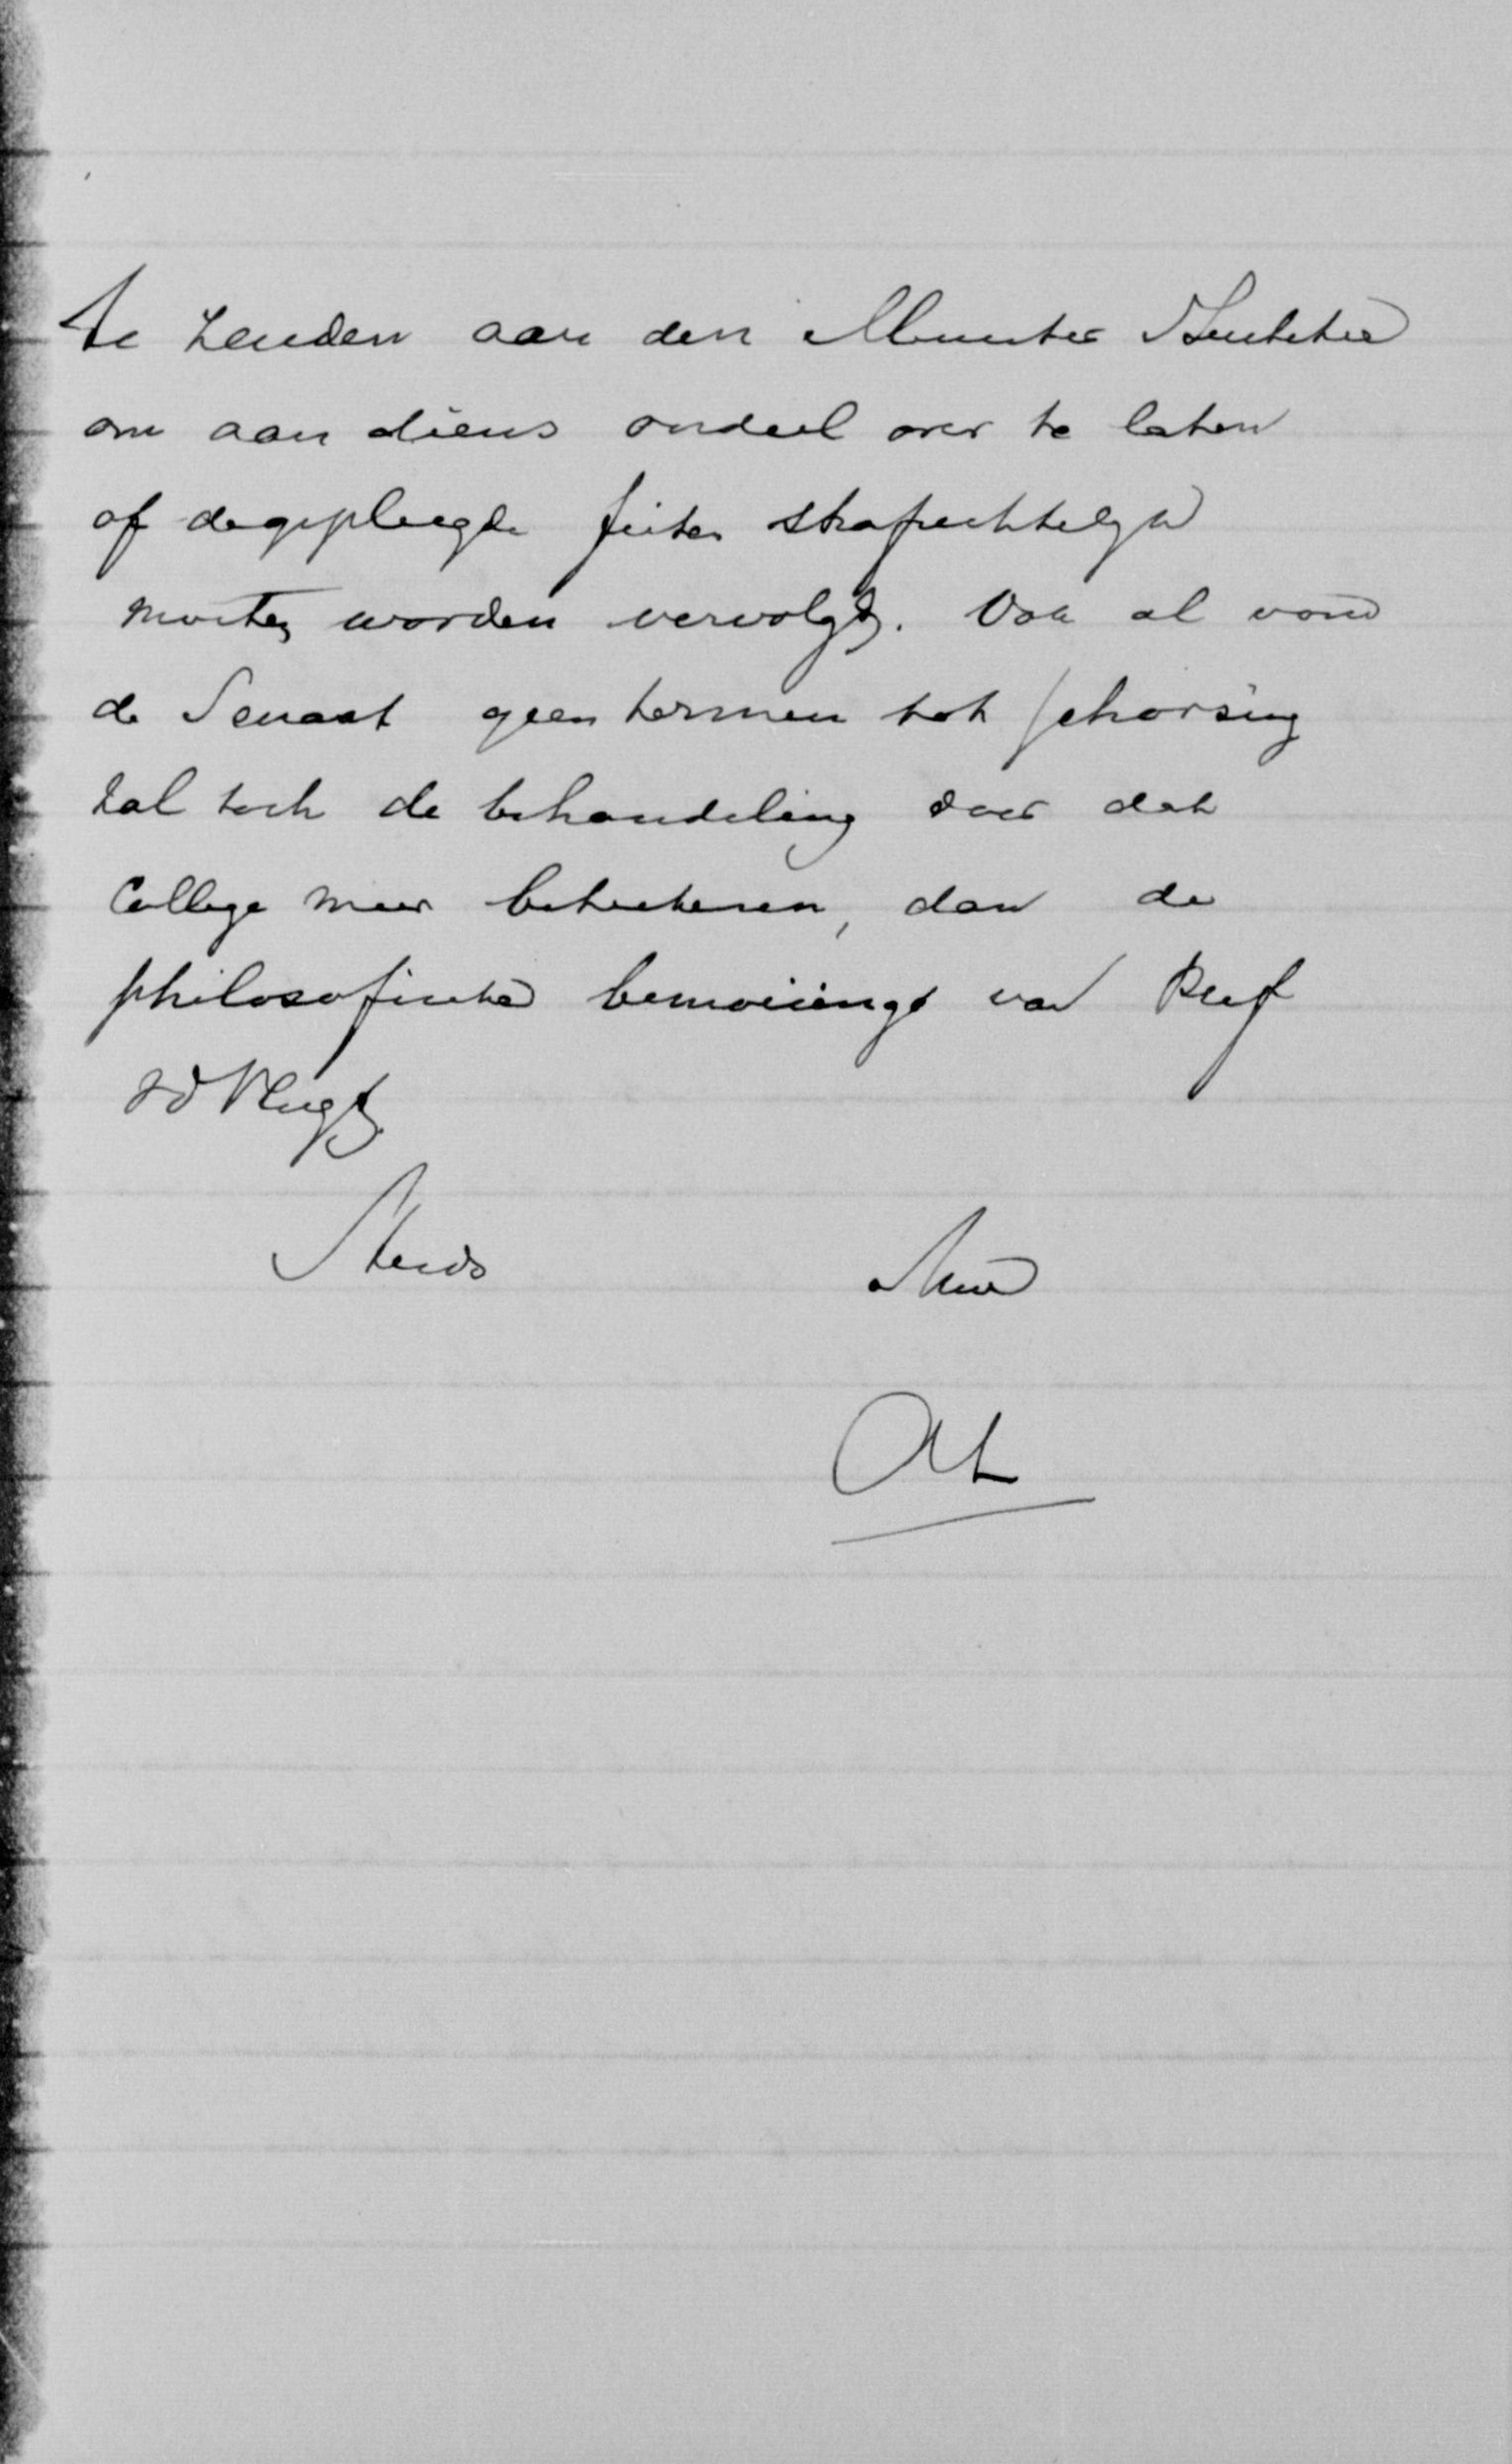 te zenden aan den Minister Justitie
om aan diens oordeel over te laten
of de gepleegde feiten strafrechtelijk
moeten worden vervolgd. Ook al vond
de Senaat geen termen tot schorsing
zal toch de behandeling door dat
College meer beteekenen, dan de
philosofische bemoeiing van Prof
vd Vlugt
Steeds